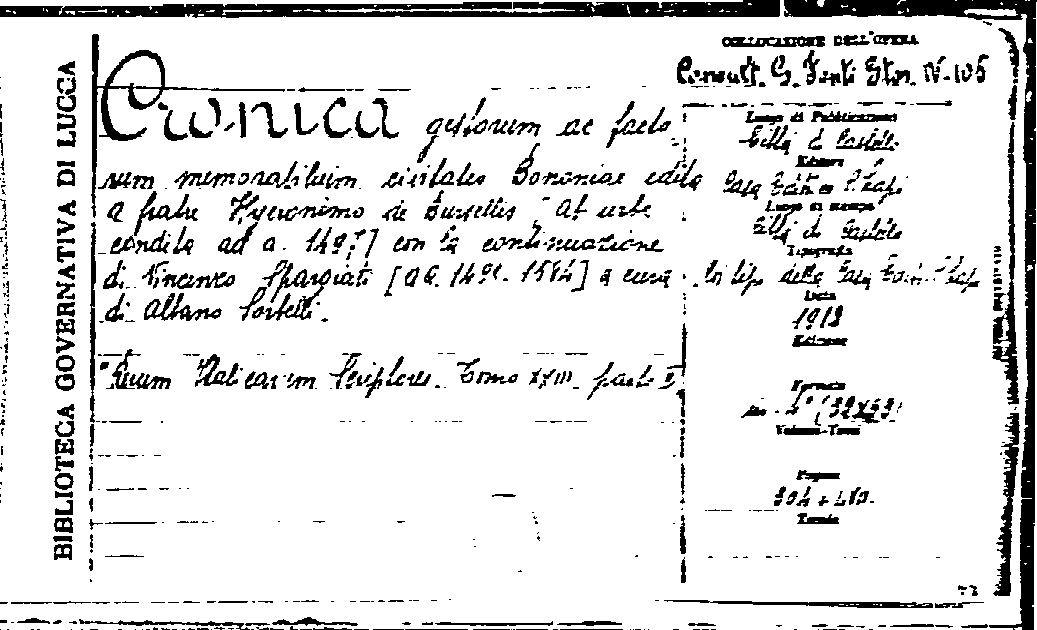 BIBLIOTECA GOVERNATIVA DI LUCCA
COLLOCAZIONE DELL'OPERA
Consult. G. Fonti Stor. IV-105
Cronica gestorum ac facto
rum memorabilium civitatis Bononiae edita
a fratre Hyeronimo de Bursellis [ab urbe
condita ad a. 1497] con la continuazione
di Vincenzo Spargiati [aa. 1498-1584] a cura
di Albano Sorbelli.
"Rerum Italicarum Scriptores. Tomo XXIII. parte II
Luogo di Pubblicazione
Città di Castello
Editore
Casa Editrice S. Lapi
Luogo di stampa
Città di Castello
Tipografia
Coi tipi della Casa Editr. S. Lapi
Data
1912
Edizione
Formato
in-4° (32x23)
Volume-Tomo
Pagine
Tavole